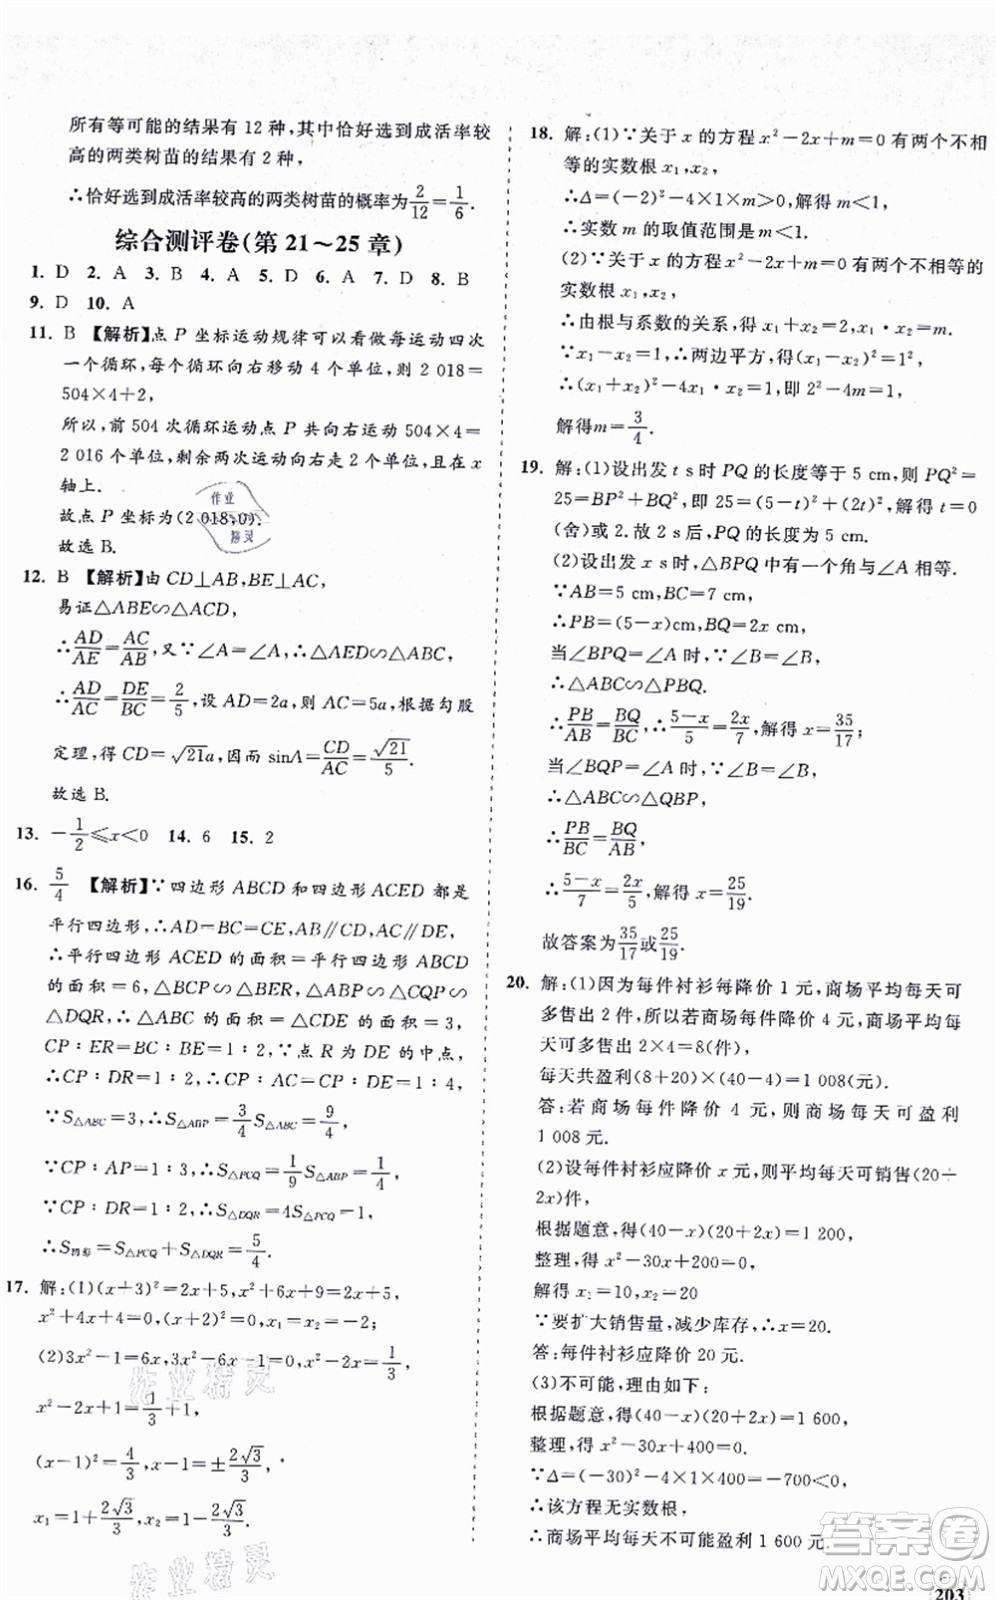 所有等可能的结果有 12 种，其中恰好选到成活率较
高的两类树苗的结果有 2 种，
∴恰好选到成活率较高的两类树苗的概率 2/12=1/6.
综合测评卷(第 21～25 章)
1. D 2. A 3. B 4. A 5. D 6. A 7. D 8. B
9. D 10. A
11. B 【解析】点 P 坐标运动规律可以看做每运动四次
一个循环，每个循环向右移动 4 个单位，则 2 018=
504×4+2，
所以，前 504 次循环运动点 P 共向右运动 504×4=
2 016 个单位，剩余两次运动向右走 2 个单位，且在 x
轴上.
故点 P 坐标为(2 018,0).
故选 B.
12. B 【解析】由 CD⊥AB,BE⊥AC,
易证△ABE∽△ACD,
∴AD/AE=AC/AB,又∵∠A=∠A,∴△AED∽△ABC,
∴AD/AC=DE/BC=2/5,设 AD=2a,则 AC=5a,根据勾股
定理,得 CD=√21a,因而 sinA=CD/AC=√21/5.
故选 B.
13. −1/2≤x<0 14. 6 15. 2
16. 5/4 【解析】∵四边形 ABCD 和四边形 ACED 都是
平行四边形,∴AD=BC=CE,AB∥CD,AC∥DE,
∴平行四边形 ACED 的面积=平行四边形 ABCD 的
面积=6,△BCP∽△BER,△ABP∽△CQP∽
△DQR,∴△ABC 的面积=△CDE 的面积=3,
CP∶ER=BC∶BE=1∶2,∵点 R 为 DE 的中点,
∴CP∶DR=1∶2,∴CP∶AC=CP∶DE=1∶4,
∵S△ABC=3,∴S△ABP=3/4S△ABC=9/4,
∵CP∶AP=1∶3,∴S△PCQ=1/9S△ABP=1/4,
∵CP∶DR=1∶2,∴S△DQR=4S△PCQ=1,
∴S阴影=S△PCQ+S△DQR=5/4.
17. 解:(1)(x+3)²=2x+5,x²+6x+9=2x+5,
x²+4x+4=0,(x+2)²=0,x₁=x₂=−2;
(2)3x²−1=6x,3x²−6x−1=0,x²−2x=1/3,
x²−2x+1=1/3+1,
(x−1)²=4/3,x−1=±2√3/3,
x₁=1+2√3/3,x₂=1−2√3/3.
18. 解:(1)∵关于 x 的方程 x²−2x+m=0 有两个不相
等的实数根 x₁,x₂,
∴Δ=(−2)²−4×1×m>0,解得 m<1,
∴实数 m 的取值范围是 m<1.
(2)∵关于 x 的方程 x²−2x+m=0 有两个不相等的
实数根 x₁,x₂,
∴由根与系数的关系,得 x₁+x₂=2,x₁·x₂=m.
∵x₁−x₂=1,∴两边平方,得(x₁−x₂)²=1²,
∴(x₁+x₂)²−4x₁·x₂=1,即 2²−4m=1,
解得m=3/4.
19. 解:(1)设出发 t s 时 PQ 的长度等于 5 cm,则 PQ²=
25=BP²+BQ²,即 25=(5−t)²+(2t)²,解得 t=0
(舍)或 2.故 2 s 时,PQ 的长度为 5 cm.
(2)设出发 x s时,△BPQ 中有一个角与∠A 相等.
∵AB=5 cm,BC=7 cm,
∴PB=(5−x)cm,BQ=2x cm,
当∠BPQ=∠A时,
∴△ABC∽△PBQ.
∴PB/AB=BQ/BC,∴5−x/5=2x/7,解得 x=35/17;
当∠BQP=∠A时,
∴△ABC∽△QBP,
∴PB/BC=BQ/AB,
∴5−x/7=2x/5,解得 x=25/19.
故答案为35/17或25/19.
20. 解:(1)因为每件衬衫每降价 1 元,商场平均每天可
多售出 2 件,所以若商场每件降价 4 元,商场平均每天
可多售出 2×4=8(件),
每天共盈利(8+20)×(40−4)=1 008(元).
答:若商场每件降价 4 元,则商场每天可盈利
1 008 元.
(2)设每件衬衫应降价 x 元,则平均每天可销售(20+
2x)件,
根据题意,得(40−x)(20+2x)=1 200,
整理,得 x²−30x+200=0,
解得 x₁=10,x₂=20
∵要扩大销售量,减少库存,∴x=20.
答:每件衬衫应降价 20 元.
(3)不可能,理由如下:
根据题意,得(40−x)(20+2x)=1 600,
整理,得 x²−30x+400=0,
∵Δ=(−30)²−4×1×400=−700<0,
∴该方程无实数根,
∴商场平均每天不可能盈利 1 600 元.
203
作业
精灵
作业精灵
作业精灵
答案圈
MXQE.COM